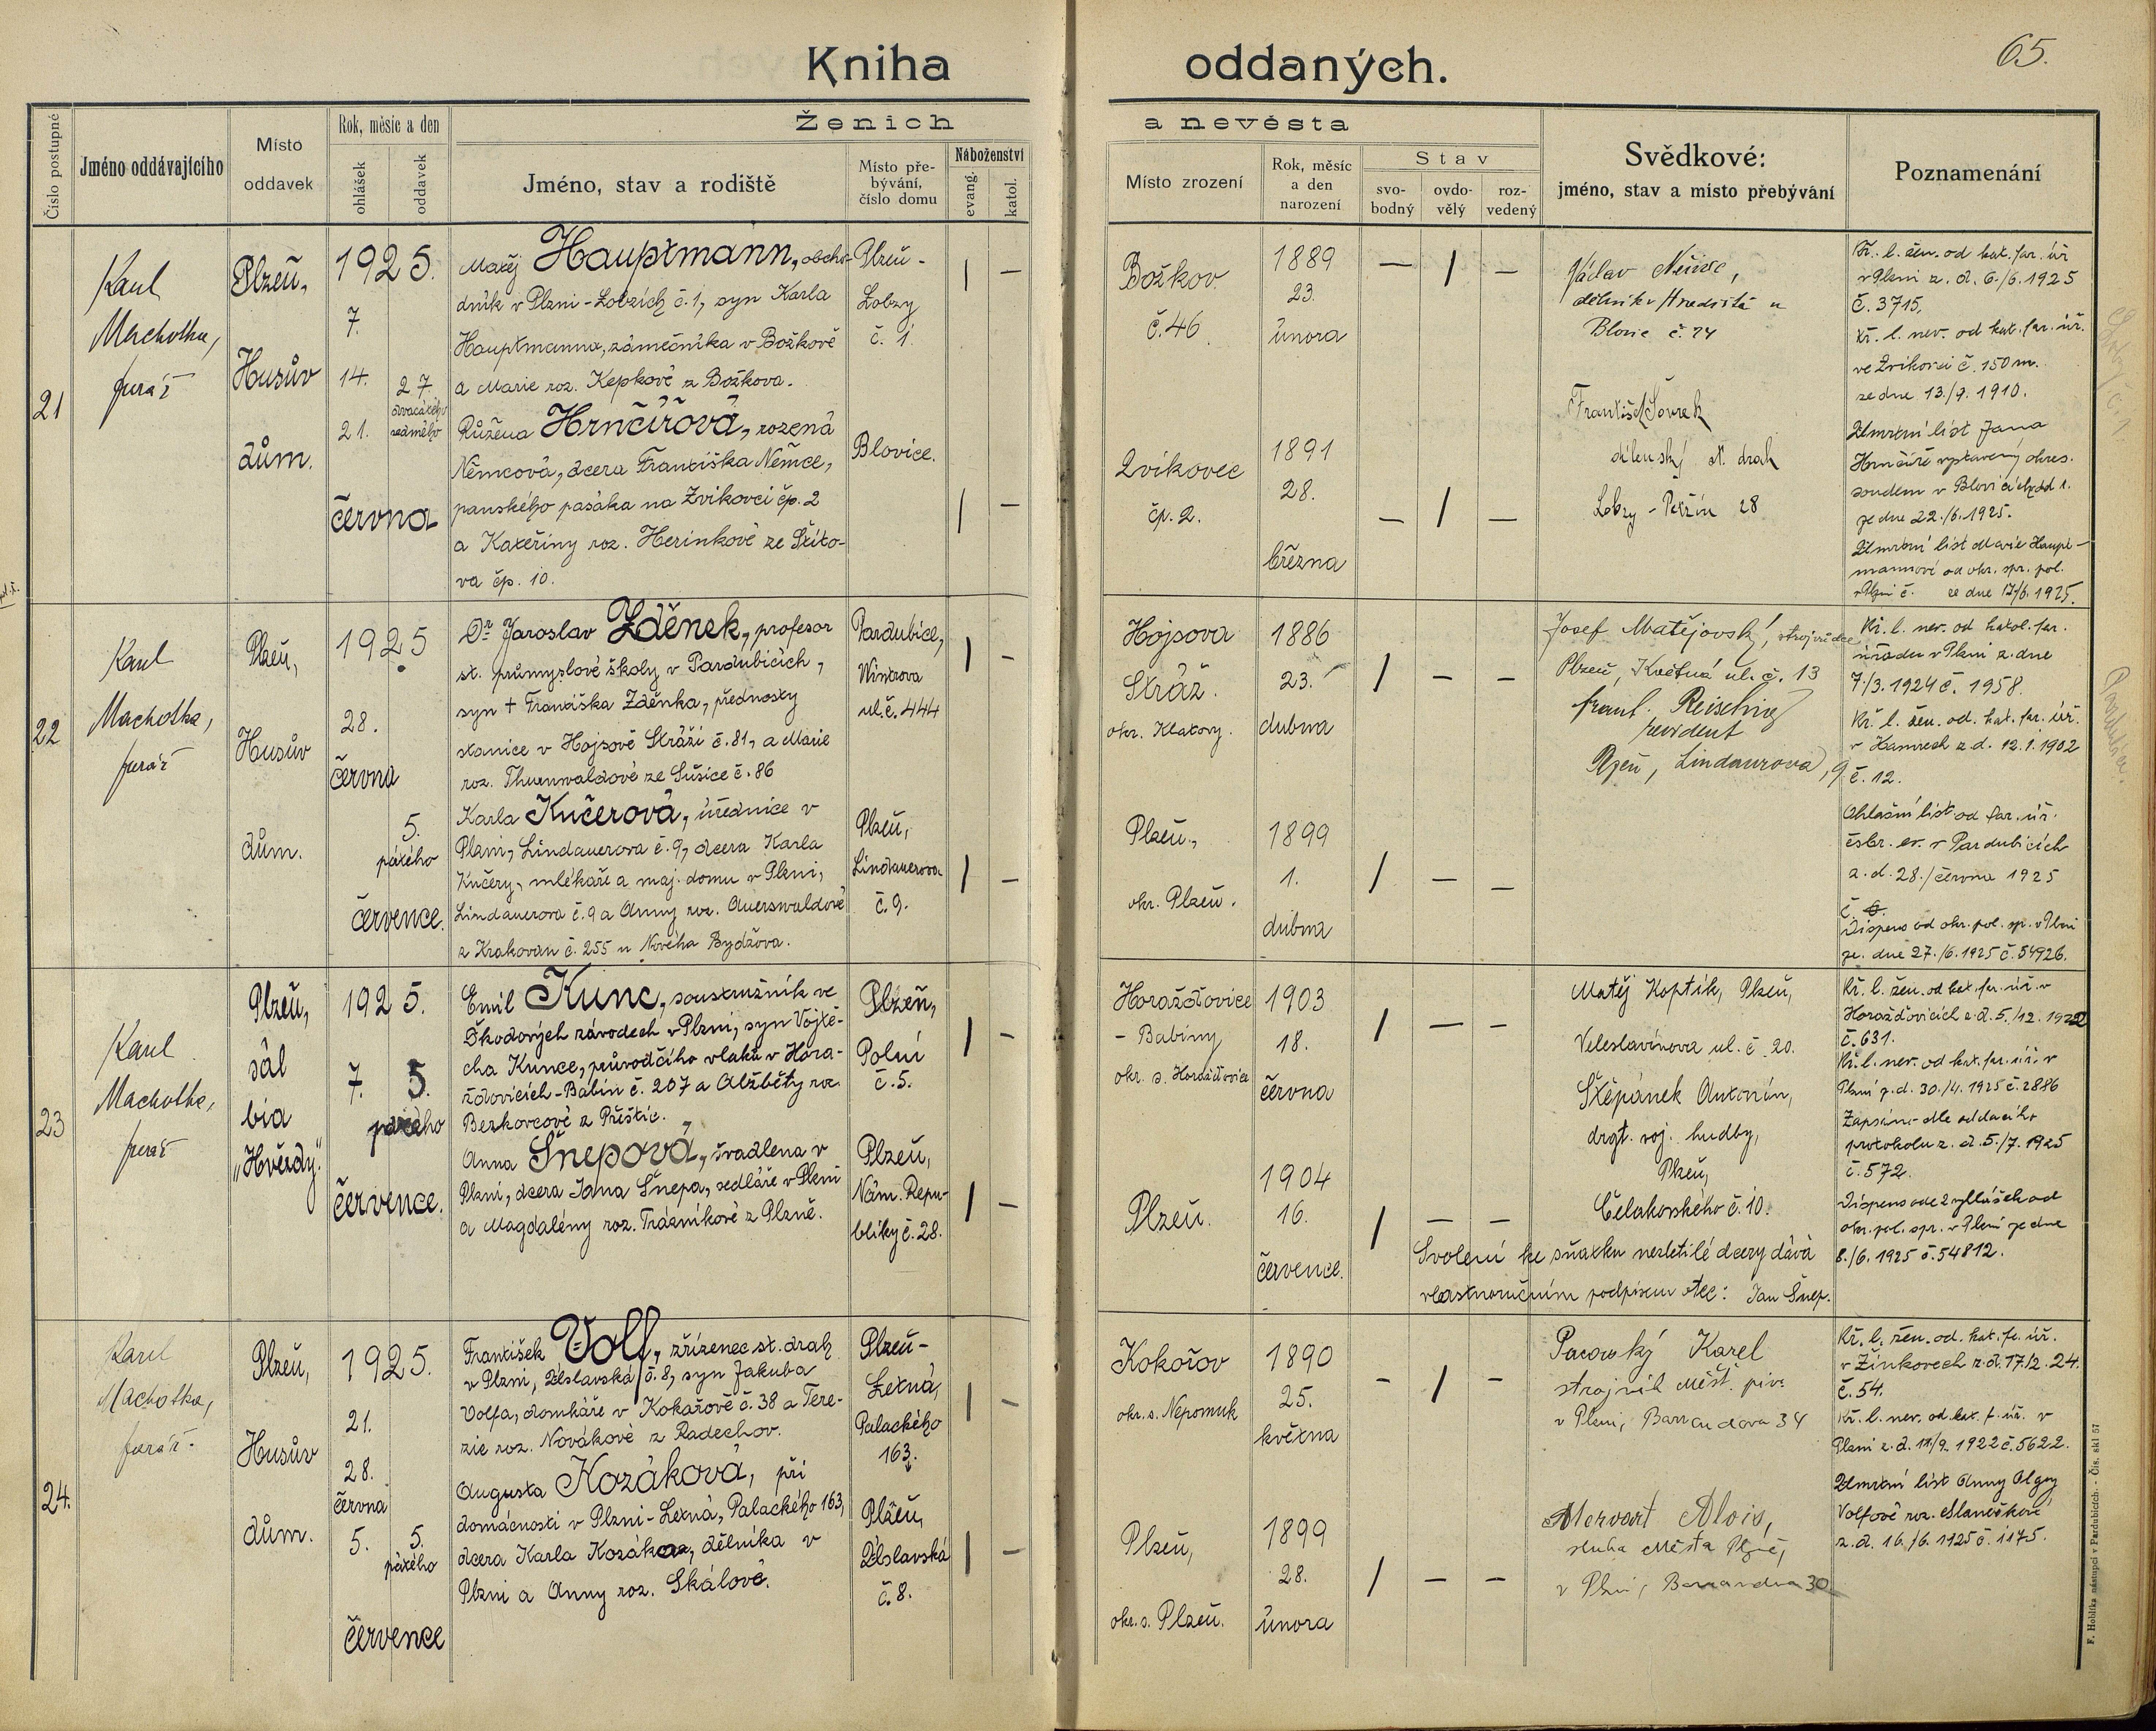 Kniha oddaných.
65.
Číslo postupné
Jméno oddávajícího
Místo
oddavek
Rok, měsíc a den
ohlášek
oddavek
Ženich a nevěsta
Jméno, stav a rodiště
Místo pře-
bývání,
číslo domu
Náboženství
evang.
katol.
Místo zrození
Rok, měsíc
a den
narození
Stav
svo-
bodný
ovdo-
vělý
roz-
vedený
Svědkové:
jméno, stav a místo přebývání
Poznamenání
21
Karel
Machotka,
farář
Plzeň,
Husův
dům.
1925.
7.
14.
21.
27.
dvacátého
sedmého
června
Matěj Hauptmann, obcho-
dník v Plzni-Lobzích č. 1, syn Karla
Hauptmanna, zámečníka v Božkově
a Marie roz. Kepkové z Božkova.
Růžena Hrnčířová, rozená
Němcová, dcera Františka Němce,
panského pasáka na Zvíkovci čp. 2
a Kateřiny roz. Herinkové ze Štíto-
va čp. 10.
Plzeň-
Lobzy
č. 1.
Blovice.
Božkov
č. 46.
1889
23.
února
Zvíkovec
čp. 2.
1891
28.
března
Václav Němec,
dělník v Hradišti u
Blovic č. 74
František
dílenský st. drah
Lobzy - 28
Kř. l. žen. od kat. far. úř.
v Plzni z. d. 6./6. 1925
č. 3715,
Kř. l. nev. od kat. far. úř.
ve Zvíkovci č. 150 m.
ze dne 13./9. 1910.
Úmrtní list Jana
Hrnčíře vystavený okres.
soudem v Blovicích
ze dne 22./6. 1925.
Úmrtní list Marie Haupt-
mannové od okr. spr. pol.
v Plzni č. ze dne 17/6. 1925.
22
Karel
Machotka,
farář
Plzeň,
Husův
dům.
1925
28.
června
5.
pátého
července.
Dr. Jaroslav Zděnek, profesor
st. průmyslové školy v Pardubicích,
syn † Františka Zděnka, přednosty
stanice v Hojsově Stráži č. 81, a Marie
roz. Thurnwaldové ze Sušice č. 86
Karla Kučerová, úřednice v
Plzni, Lindauerova č. 9, dcera Karla
Kučery, mlékaře a maj. domu v Plzni,
Lindauerova č. 9 a Anny roz. Auerswaldové
z Krakovan č. 255 u Nového Bydžova.
Pardubice,
Wintrova
ul. č. 444
Plzeň,
Lindauerova
č. 9.
Hojsova
Stráž.
okr. Klatovy.
1886
23.
dubna
Plzeň,
okr. Plzeň.
1899
1.
dubna
Josef Matějovský, strojvůdce
Plzeň, Květná ul. č. 13
frant. Reisching
revident
Plzeň, Lindaurova, 9
Kř. l. nev. od katol. far.
úřadu v Plzni z. dne
7./3. 1924 č. 1958.
Kř. l. žen. od. kat. far. úř.
v Hamrech z. d. 12. 1. 1902
č. 12.
Ohlašní list od far. úř.
česbr. ev. v Pardubicích
z. d. 28./června 1925
č.
Dispens od okr. pol. sp. v Plzni
ze. dne 27./6. 1925 č. 54926.
Pardubice.
23
Karel
Machotka,
farář
Plzeň,
sál
bia
„Hvězdy."
1925.
7.
5.
pátého
července.
Emil Kunc, soustružník ve
Škodových závodech v Plzni, syn Vojtě-
cha Kunce, průvodčího vlaků v Hora-
žďovicích-Babín č. 207 a Alžběty roz.
Berkovcové z Přeštic.
Anna Šnepová, švadlena v
Plzni, dcera Jana Šnepa, sedláře v Plzni
a Magdalény roz. Trázníkové z Plzně.
Plzeň,
Polní
č. 5.
Plzeň,
Nám. Repu-
bliky č. 28.
Horažďovice
- Babiny
okr. s. Horažďovice
1903
18.
června
Plzeň.
1904
16.
července.
Matěj Koptík, Plzeň,
Veleslavínova ul. č. 20.
Štěpánek Antonín,
drgt. voj. hudby,
Plzeň,
Čelakovského č. 10.
Svolení ke sňatku nezletilé dcery dává
vlastnoručním podpisem otec: Jan Šnep.
Kř. l. žen. od kat. far. úř. v
Horažďovicích z. d. 5./12. 1922
č. 631.
Kř. l. nev. od kat. far. úř. v
Plzni z. d. 30./4. 1925 č. 2886
Zapsáno dle oddacího
protokolu z. d. 5./7. 1925
č. 572.
Dispens ode 2 ohlášek od
okr. pol. spr. v Plzni ze dne
8./6. 1925 č. 54812.
24.
Karel
Machotka,
farář.
Plzeň,
Husův
dům.
1925.
21.
28.
června
5.
5.
pátého
července
František Volf, zřízenec st. drah
v Plzni, Úslavská č. 8, syn Jakuba
Volfa, domkáře v Kokořově č. 38 a Tere-
zie roz. Novákové z Radechov.
Augusta Kozáková, při
domácnosti v Plzni-Letná, Palackého 163,
dcera Karla Kozáka, dělníka v
Plzni a Anny roz. Skálové.
Plzeň-
Letná,
Palackého
163.
Plzeň,
Úslavská
č. 8.
Kokořov
okr. s. Nepomuk
1890
25.
května
Plzeň,
okr. s. Plzeň.
1899
28.
února
Pacovský Karel
strojník měšť. piv.
v Plzni, Barrandova 34
Mervart Alois,
sluha města Plzně,
v Plzni, Barrandova 30
Kř. l. žen. od. kat. fa. úř.
v Žinkovech z. d. 17./2. 24.
č. 54.
Kř. l. nev. od. kat. f. úř. v
Plzni z. d. 11/9. 1922 č. 5622.
Úmrtní list Anny Olgy
Volfové roz. Slanečkové
z. d. 16./6. 1925 č. 1175.
F. Hoblíka nástupci v Pardubicích. - Čís. skl 57